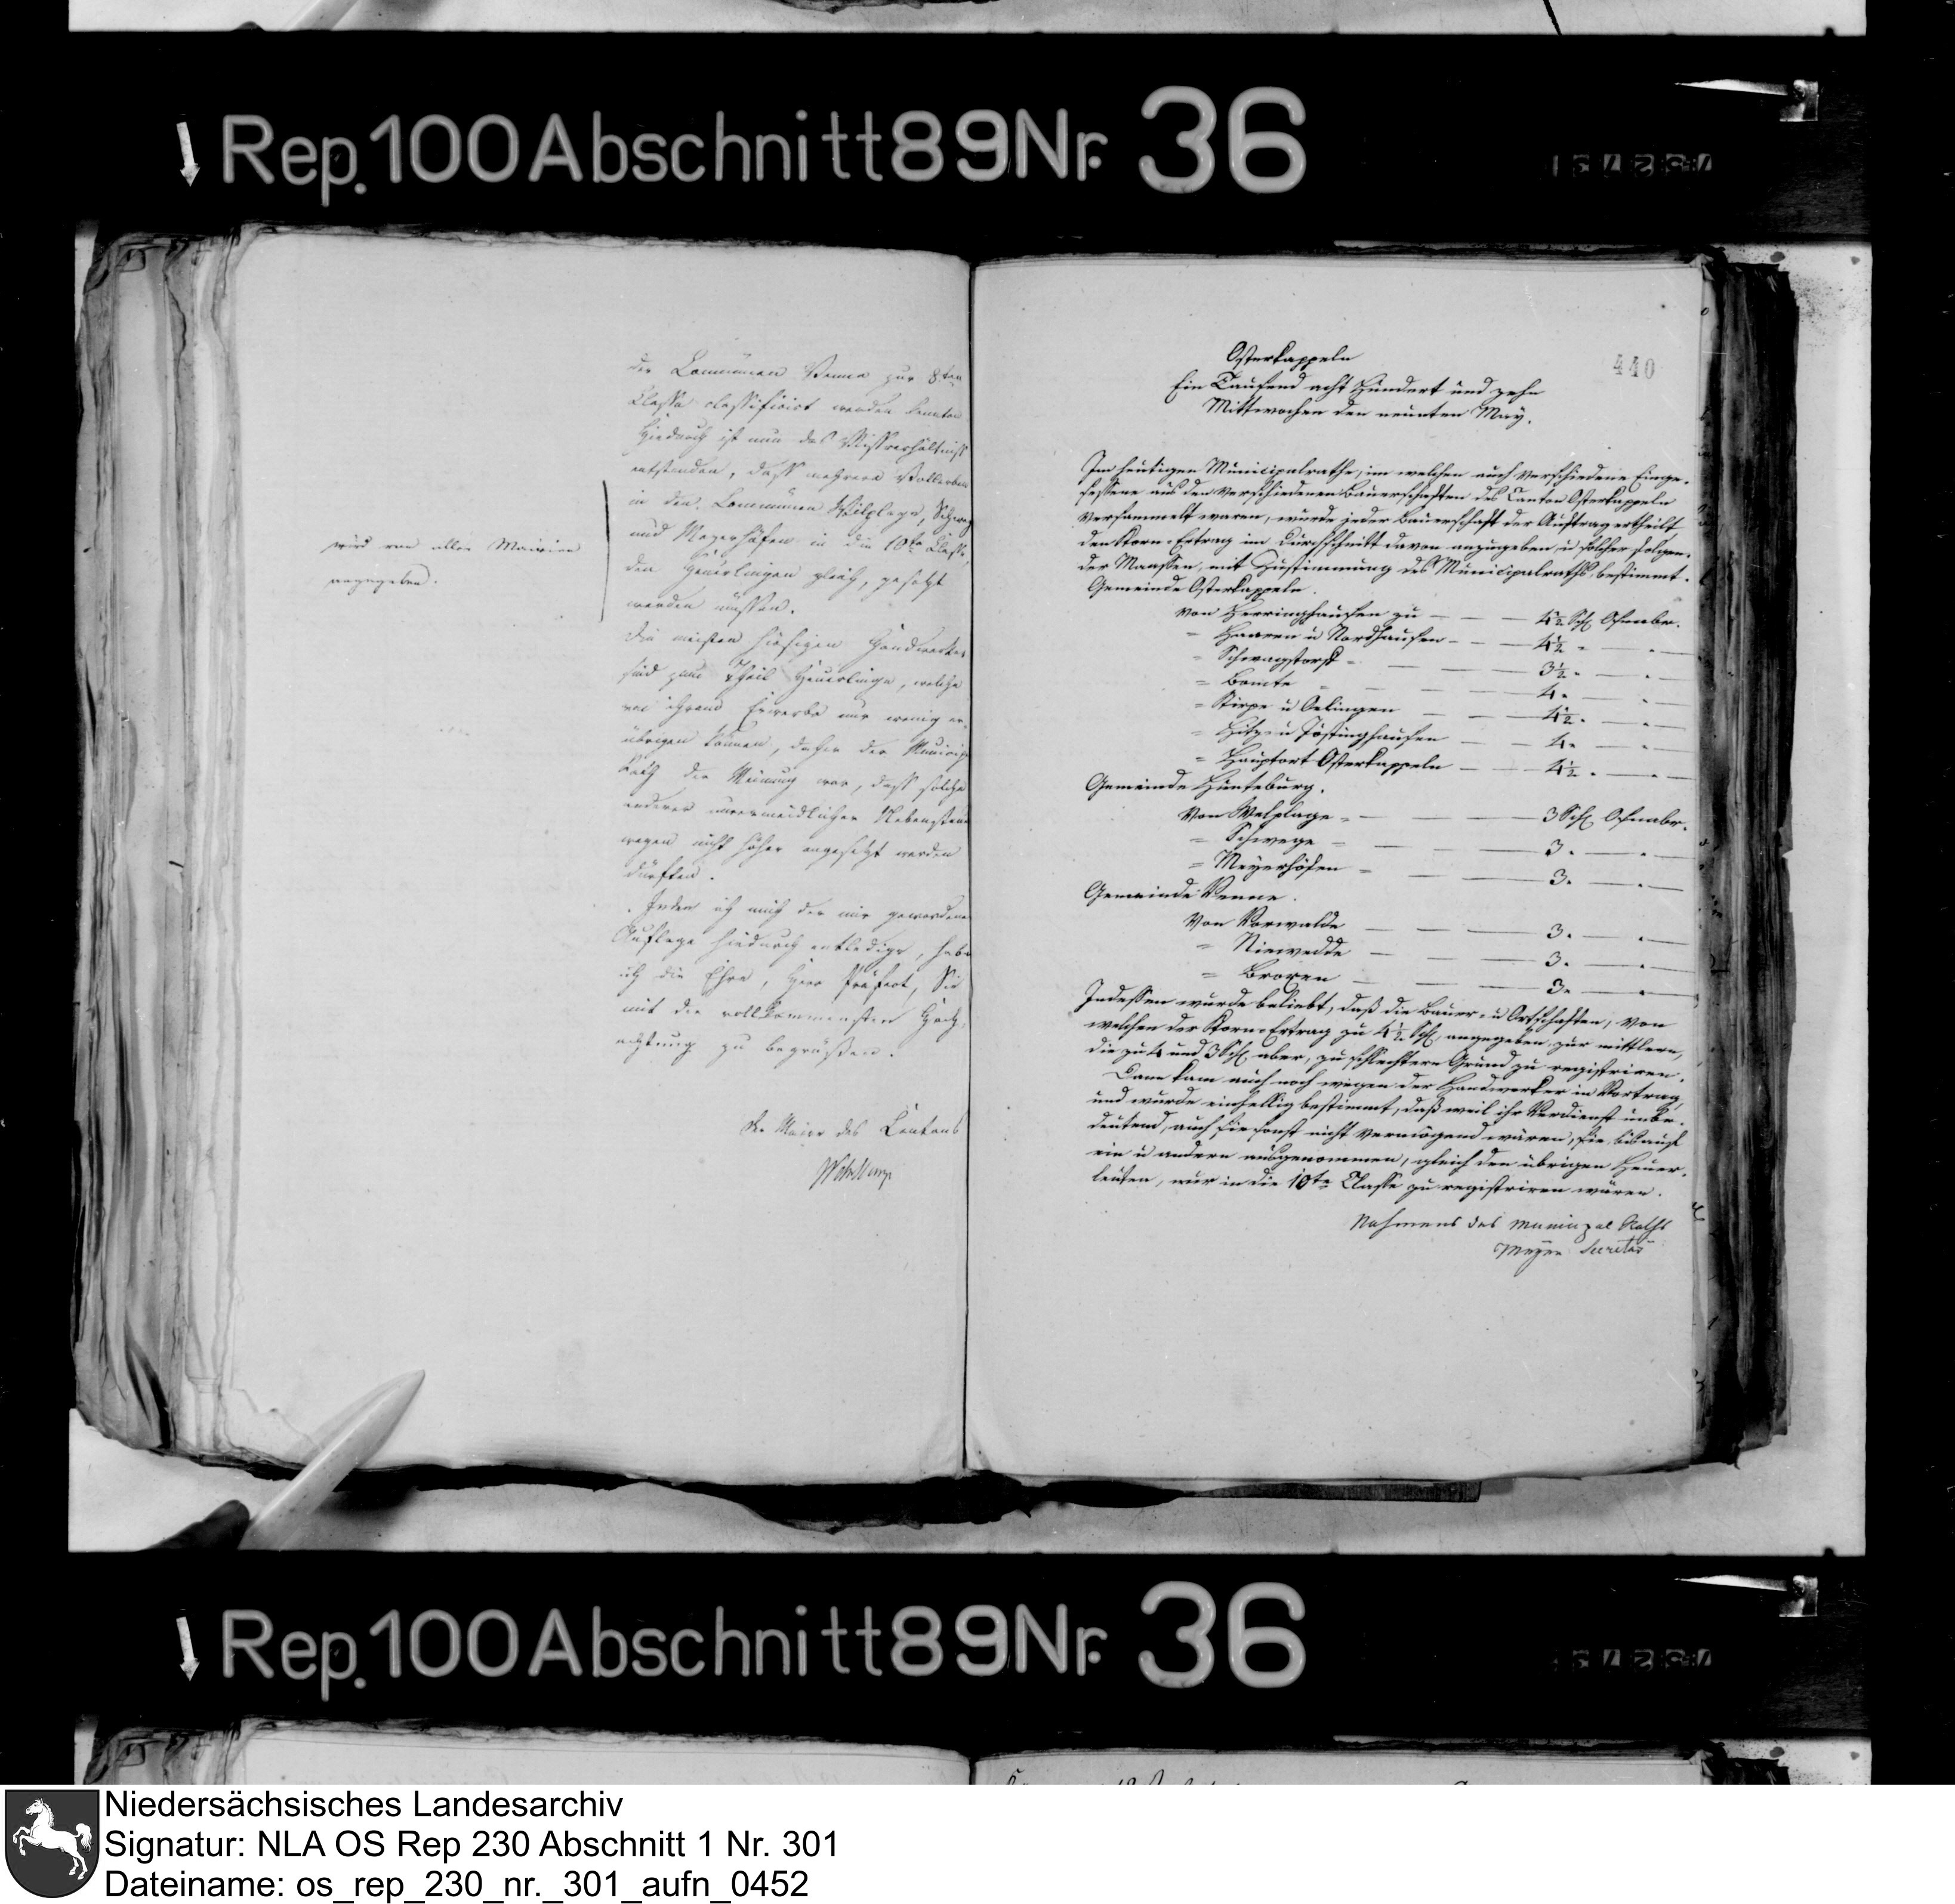 Rep. 100 Abschnitt 89 Nr. 36
der Communen Venne zur 8ten
Classe classificirt werden konnten
Hiedurch ist nun das Missverhältniss
entstanden, dass mehrere Vollerben
in den Communen Welplage, Schwege
und Meyerhöfen in die 10te Classe,
den Heuerlingen gleich, gesetzt
werden müssen.
wird von allen Mairien
angegeben.
Die meisten hiesigen Handwerker
sind zum Theil Heuerlinge, welche
von ihrem Erwerbe nur wenig er-
übrigen können, daher der Municipal
Rath der Meinung war, dass solche
anderer unvermeidlicher
wegen nicht höher angesetzt werden
dürften.
Indem ich mich der mir gewordenen
Auflage hiedurch entledige, habe
ich die Ehre, Herr Präfect, Sie
mit der vollkommensten Hoch-
achtung zu begrüßen.
Der Maire des Cantons
440
Osterkappeln
Ein Tausend acht Hundert und zehn
Mittwochen den neunten May.
Im heutigen Municipalrathe, im welchen auch verschiedene Einge-
sessene aus den verschiedenen Bauerschaften des Canton Osterkappeln
versammelt waren, wurde jeder Bauerschaft der Auftrag ertheilt
den Korn-Ertrag im Durchschnitt davon anzugeben, u solcher folgen-
der Maassen, mit Zustimmung des Municipalraths, bestimmt.
Gemeinde Osterkappeln.
Von Herringhausen zu — — 4½ Sch Osnabr.
" Haaren u Nordhausen — — 4½ " — " —
" Schwagstorf — — 3½ " — " —
" Bomte — — 4 " — " —
" Stirpe u Oelingen — — 4½ " — " —
" Hitz- u Jöstinghausen — — 4 " — " —
" Hauptort Osterkappeln — — 4½ " — " —
Gemeinde Hunteburg.
Von Welplage — — 3 Sch Osnabr.
" Schwege — — 3 " — " —
" Meyerhöfen — — 3 " — " —
Gemeinde Venne.
Von Vorwalde — — 3 " — " —
" Niewedde — — 3 " — " —
" Broxten — — 3 " — " —
Indessen wurde beliebt, daß die Bauer- u Ortschaften, von
welchen der Korn-Ertrag zu 4½ Sch, angegeben, zur mittlern,
die zu 4 und 3 Sch aber, zu schlechtern Grund zu registriren.
Dann kam auch noch wegen der Handwerker in Vortrag,
und wurde einhellig bestimmt, daß weil ihr Verdienst unbe-
deutend, auch sie sonst nicht vermögend wären, sie, bis auf
ein u andern ausgenommen, gleich den übrigen Heuer-
leuten, nur in die 10te Classe zu registriren wären.
Nahmens des Municipal Raths
Meyer Secretär
Rep. 100 Abschnitt 89 Nr. 36
Niedersächsisches Landesarchiv
Signatur: NLA OS Rep 230 Abschnitt 1 Nr. 301
Dateiname: os_rep_230_nr._301_aufn_0452